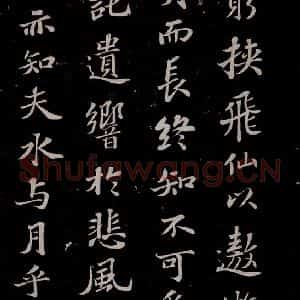 挾飛仙以遨
而長終知不可
託遺響於悲風
亦知夫水与月乎
Shufawang.CN